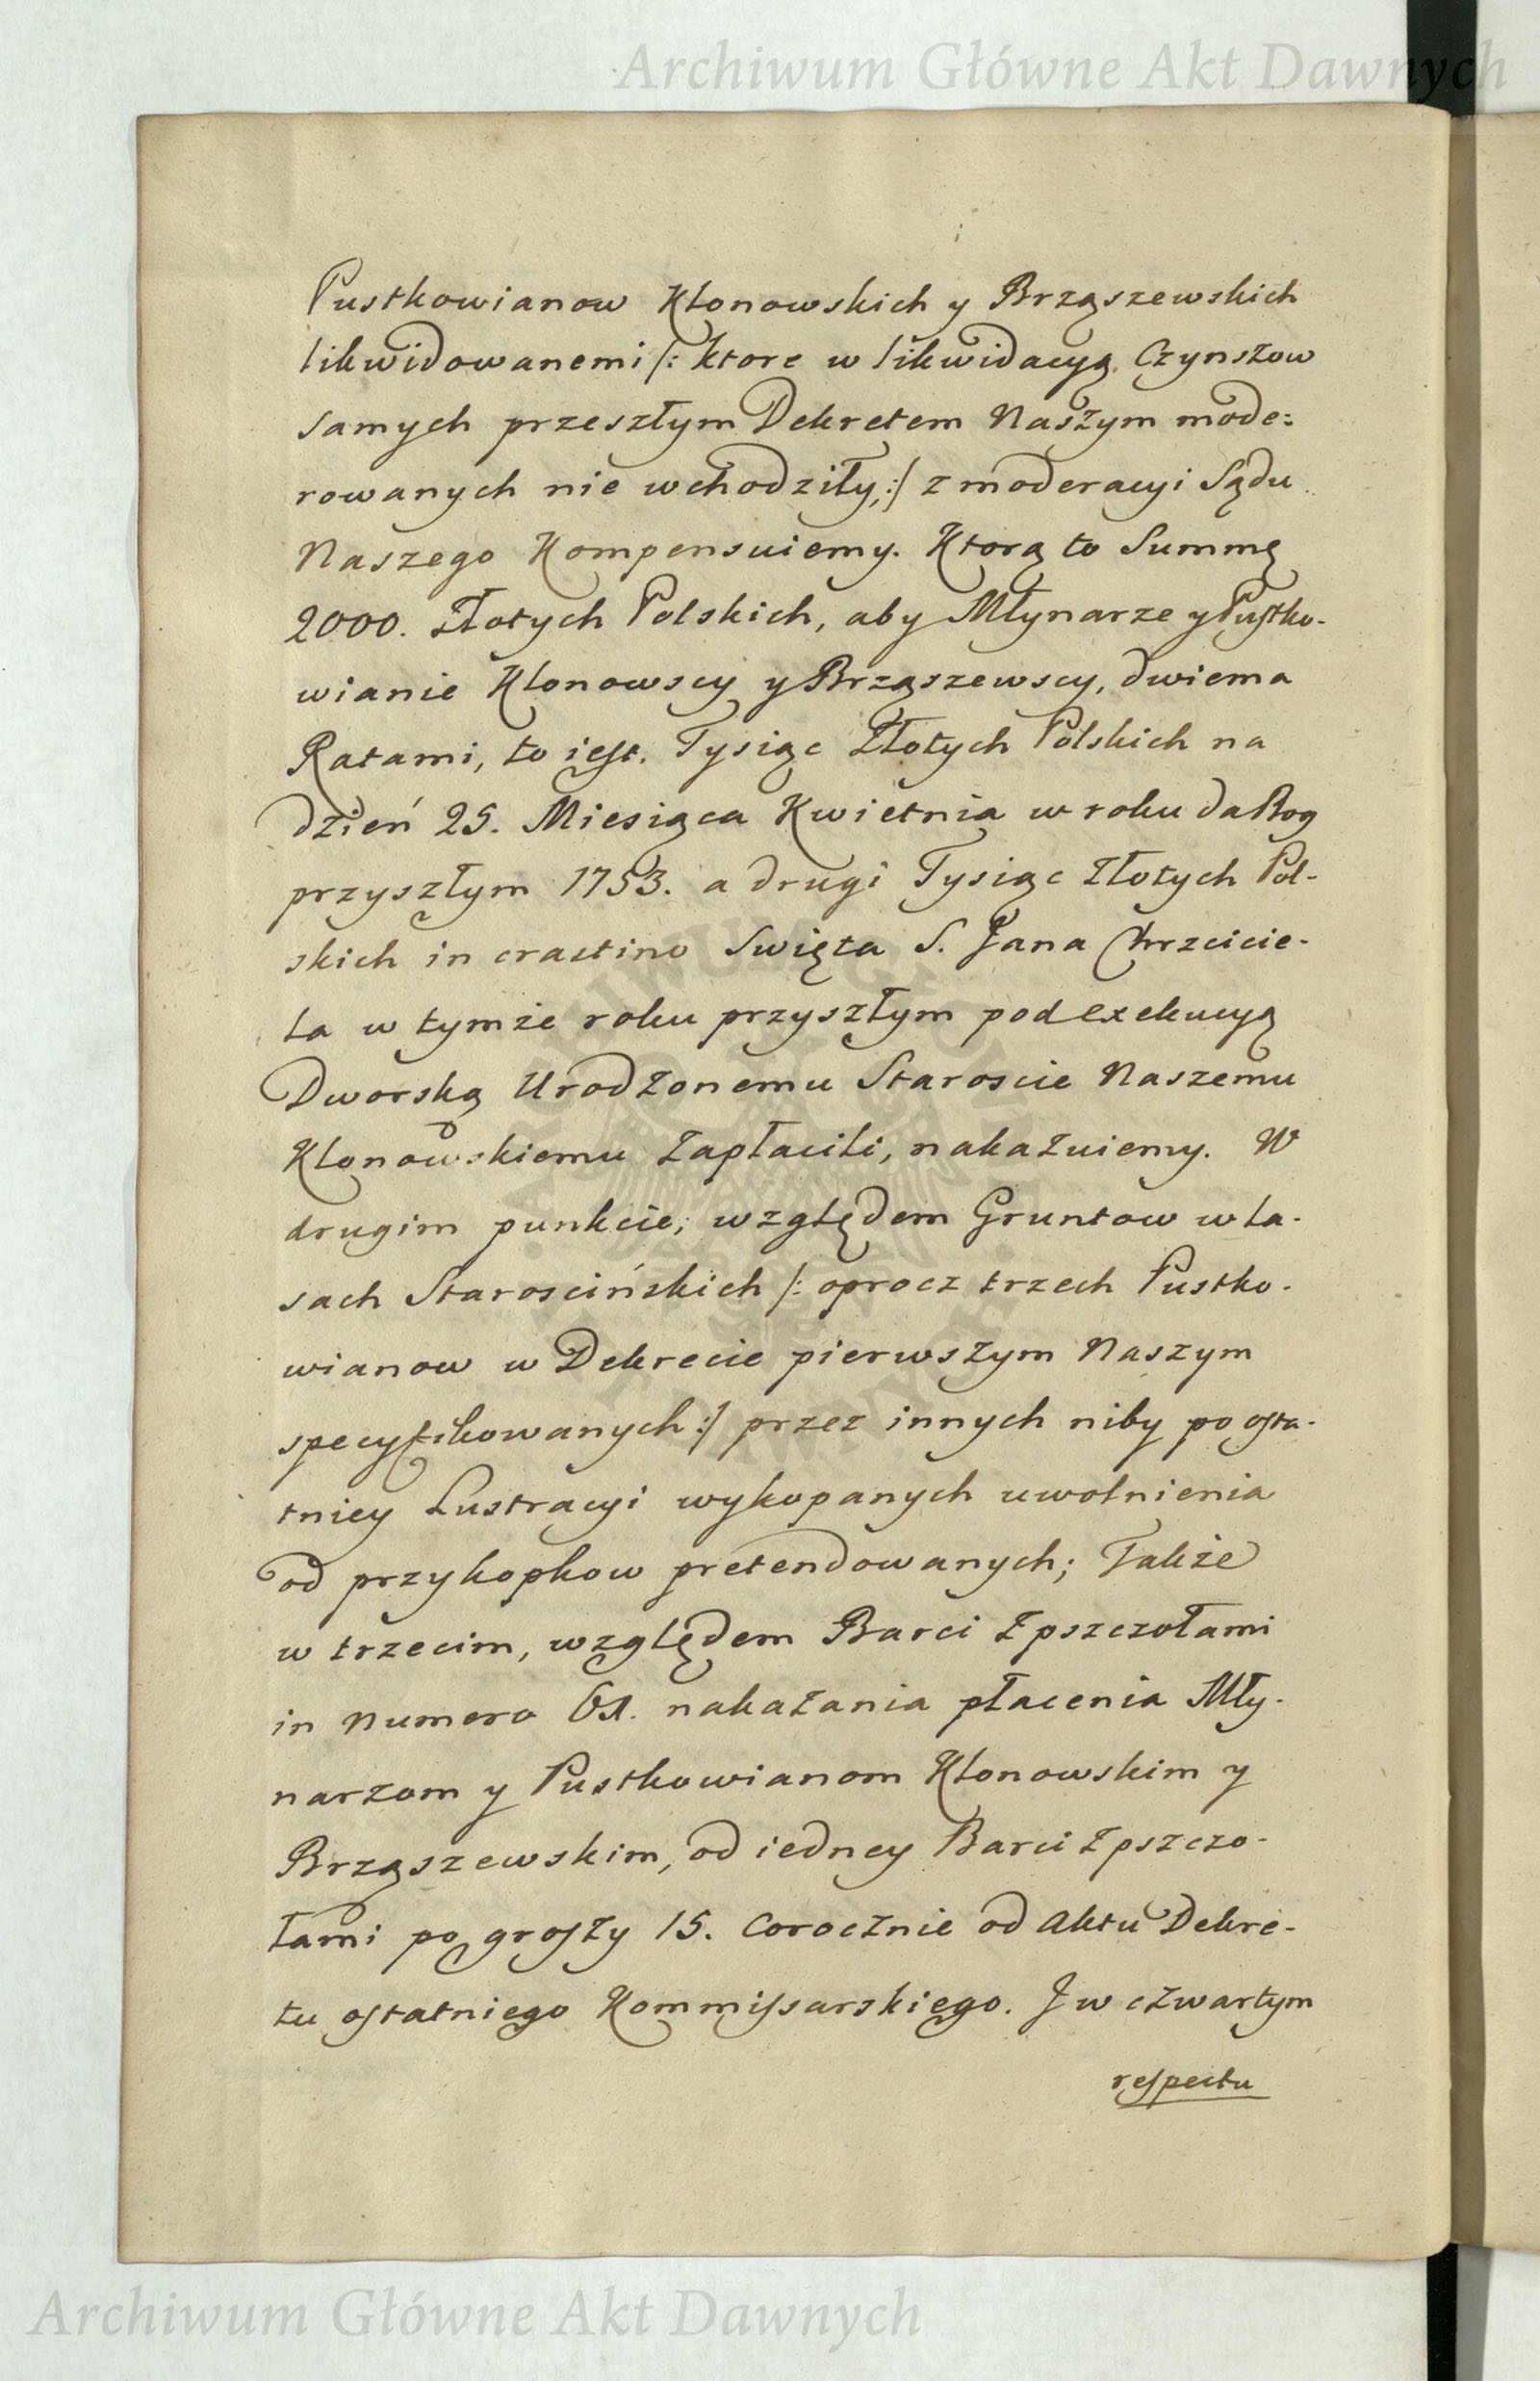 Archiwum Główne Akt Dawnych
Pustkowianow Klonowskich y Brząszewskich
likwidowanemi /: ktore w likwidacyą Czynszow
samych przeszłym Dekretem Naszym mode:
rowanych nie wchodziły, :/ z moderacyi Sądu
Naszego Kompensuiemy. Ktorą to Summę
2000. Złotych Polskich, aby Młynarze y Pustko-
wianie Klonowscy y Brząszewscy, dwiema
Ratami, to iest. Tysiąc Złotych Polskich na
dzień 25. Miesiąca Kwietnia w roku da Bog
przyszłym 1753. a drugi Tysiąc Złotych Pol-
skich in crastino Swięta S. Jana Chrzcicie-
la w tymże roku przyszłym pod exekucyą
Dworską Urodzonemu Staroscie Naszemu
Klonowskiemu zapłacili, nakazuiemy. W
drugim punkcie; względem Gruntow w la-
sach Starościńskich /: oprocz trzech Pustko-
wianow w Dekrecie pierwszym Naszym
specyfikowanych :/ przez innych niby po osta-
tniey Lustracyi wykopanych uwolnienia
od przykopkow pretendowanych; Także
w trzecim, względem Barci z pszczołami
in Numero nakazania płacenia Mły-
narzom y Pustkowianom Klonowskim y
Brząszewskim, od iedney Barci z pszczo-
łami po groszy 15. corocznie od Aktu Dekre-
tu ostatniego Kommissarskiego. J w czwartym
respectu
Archiwum Główne Akt Dawnych